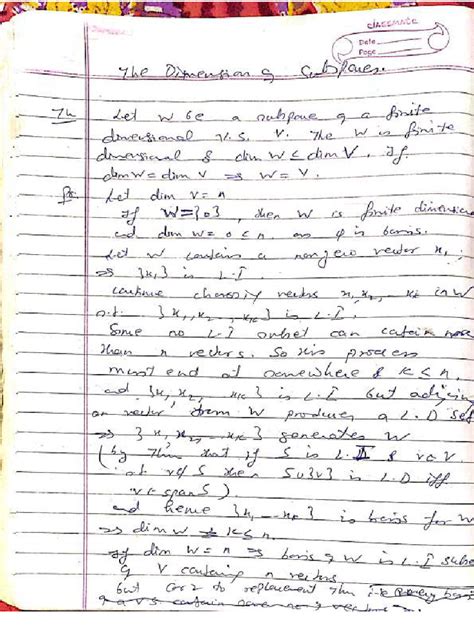 classmate
Date
Page
The Dimension of Subspaces.
Th Let W be a subspace of a finite
dimensional V.S. V. The W is finite
dimensional & dim W ≤ dim V. If
dim W = dim V ⇒ W = V.
Pf Let dim V = n
If W = {0}, then W is finite dimension
and dim W = 0 ≤ n as φ is basis.
Let W contains a nonzero vector x1
⇒ {x1} is L.I
continue choosing vectors x1, x2, xk in W
s.t. {x1, x2 .. xk} is L.I.
Some no L.I subset can contain more
than n vectors. So this process
must end at somewhere & k ≤ n
and {x1, x2, .. xk} is L.I but adjoining
on vector from W produces a L.D set
⇒ {x1, x2, -- xk} generates W
(by Thm that if S is L.I & v∈V
st v∉S then SU{v} is L.D iff
v∈span S)
and hence {x1 -- xk} is basis for W
⇒ dim W = k ≤ n
If dim W = n ⇒ basis of W is L.I subse
of V containing n vectors
but Cor 2 to replacement Thm i.e every basis
of a V.S contain same no of vectors